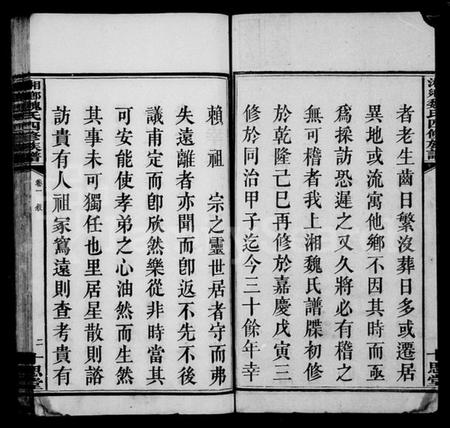 者老生齒日繁沒葬日多或遷居
異地或流寓他鄉不因其時而亟
為採訪恐遲之又久將必有稽之
無可稽者我上湘魏氏譜牒初修
於乾隆己巳再修於嘉慶戊寅三
修於同治甲子迄今三十餘年幸
賴 祖宗之靈世居者守而弗
失遠離者亦聞而卽返不先不後
議甫定而卽欣然樂從非時當其
可安能使孝弟之心油然而生然
其事未可獨任也里居星散則諮
訪貴有人祖家寫遠則查考貴有
湘鄉魏氏四修族譜
卷一
二